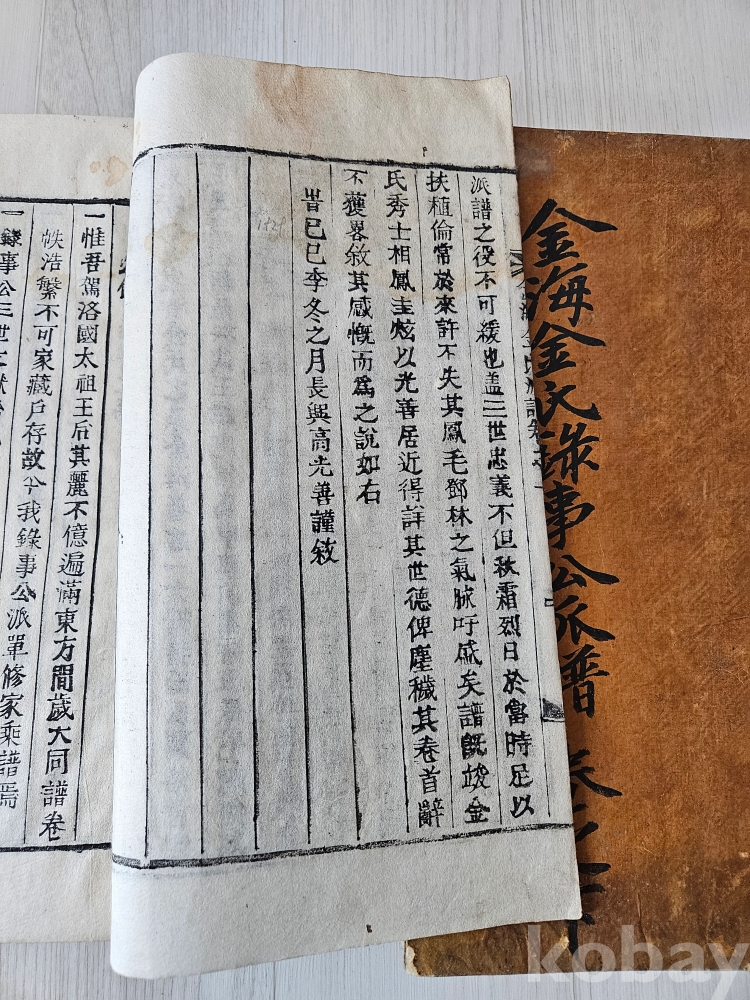 金海金氏錄事公派譜
派譜之役不可緩也盖三世忠義不但秋霜烈日於當時足以
扶植倫常於來許不失其鳳毛鄧林之氣脉吁盛矣譜旣竣金
氏秀士相鳳圭炫以光善居近得詳其世德俾塵穢其卷首辭
不獲畧敘其感慨而爲之說如右
旹己巳季冬之月長興高光善謹敘
一惟吾駕洛國太祖王后其麗不億遍滿東方間歲大同譜卷
帙浩繁不可家藏戶存故今我錄事公派單修家乘譜焉
一錄事公三世
kobay